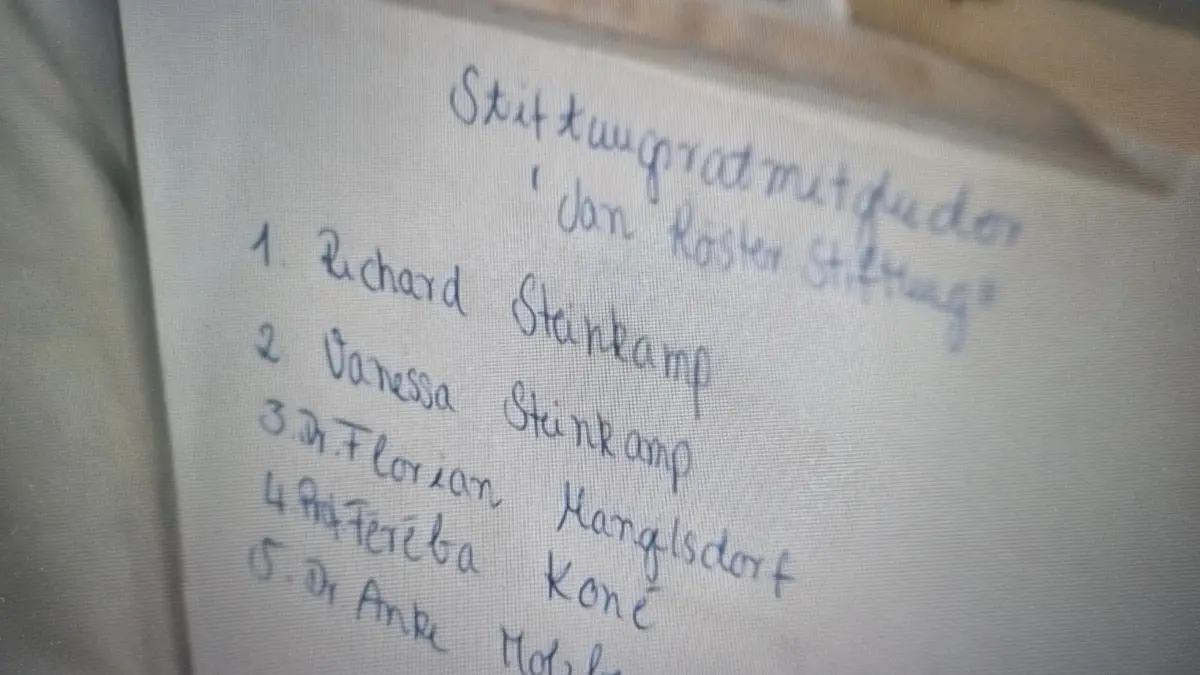 Stiftungsratmitglieder
"Jan Köster Stiftung"
1. Richard Steinkamp
2 Vanessa Steinkamp
3. Dr. Florian Manglsdorf
4 Prof Fereba Koné
5. Dr Anke